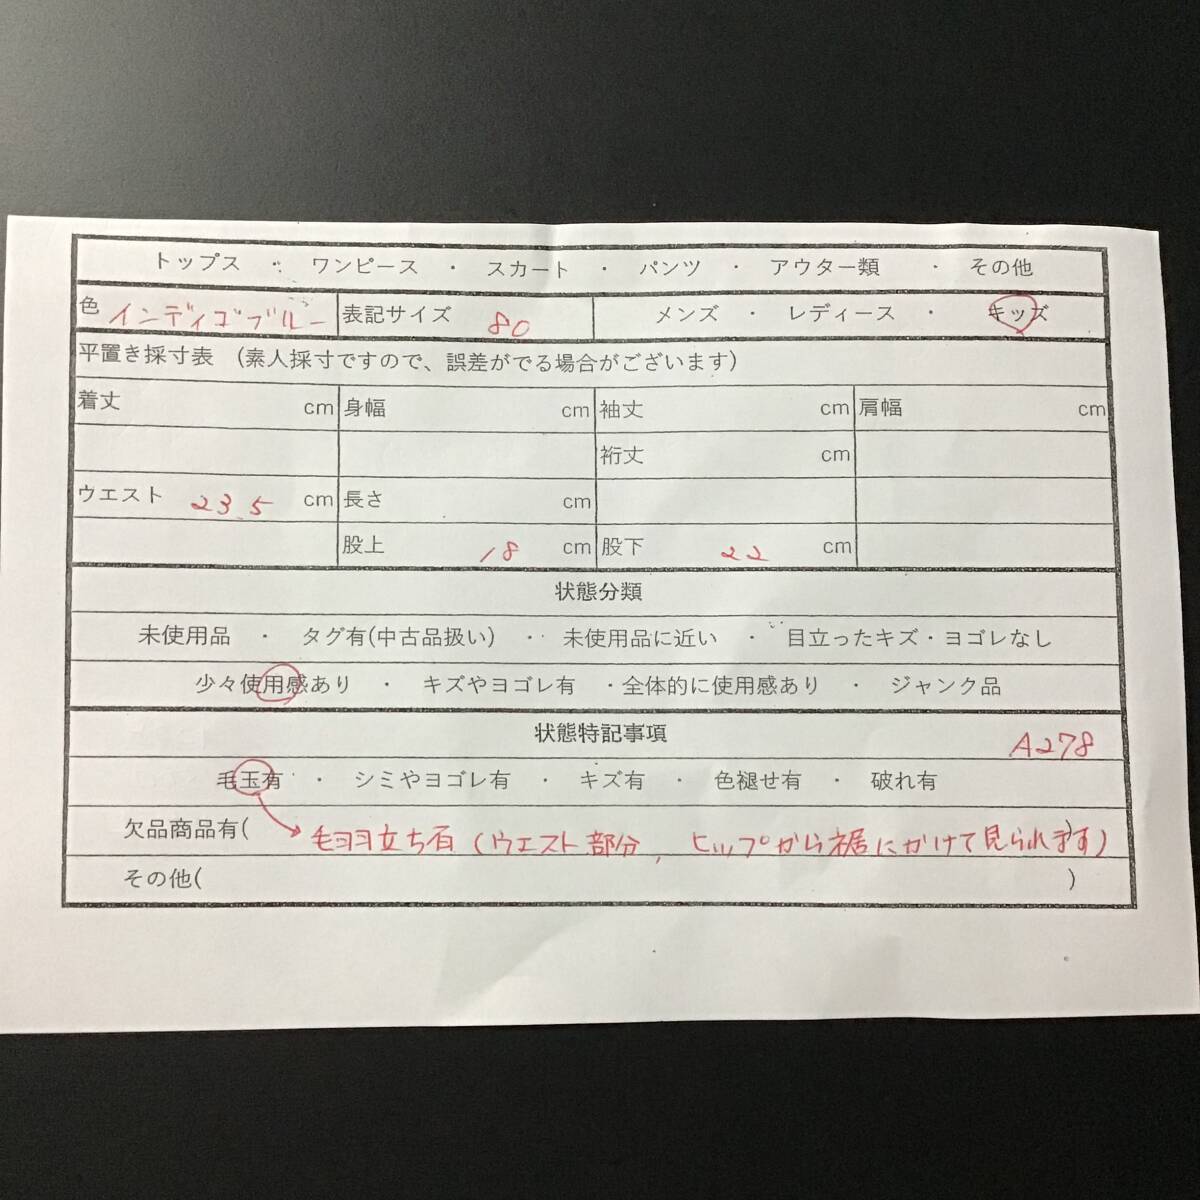 トップス ・ ワンピース ・ スカート ・ パンツ ・ アウター類 ・ その他
色 インディゴブルー 表記サイズ 80 メンズ ・ レディース ・ キッズ
平置き採寸表 (素人採寸ですので、誤差がでる場合がございます)
着丈 cm 身幅 cm 袖丈 cm 肩幅 cm
裄丈 cm
ウエスト 23.5 cm 長さ cm
股上 18 cm 股下 22 cm
状態分類
未使用品 ・ タグ有(中古品扱い) ・ 未使用品に近い ・ 目立ったキズ・ヨゴレなし
少々使用感あり ・ キズやヨゴレ有 ・全体的に使用感あり ・ ジャンク品
状態特記事項 A278
毛玉有 ・ シミやヨゴレ有 ・ キズ有 ・ 色褪せ有 ・ 破れ有
欠品商品有( )
毛羽立ち有 (ウエスト部分, ヒップから裾にかけて見られます)
その他( )